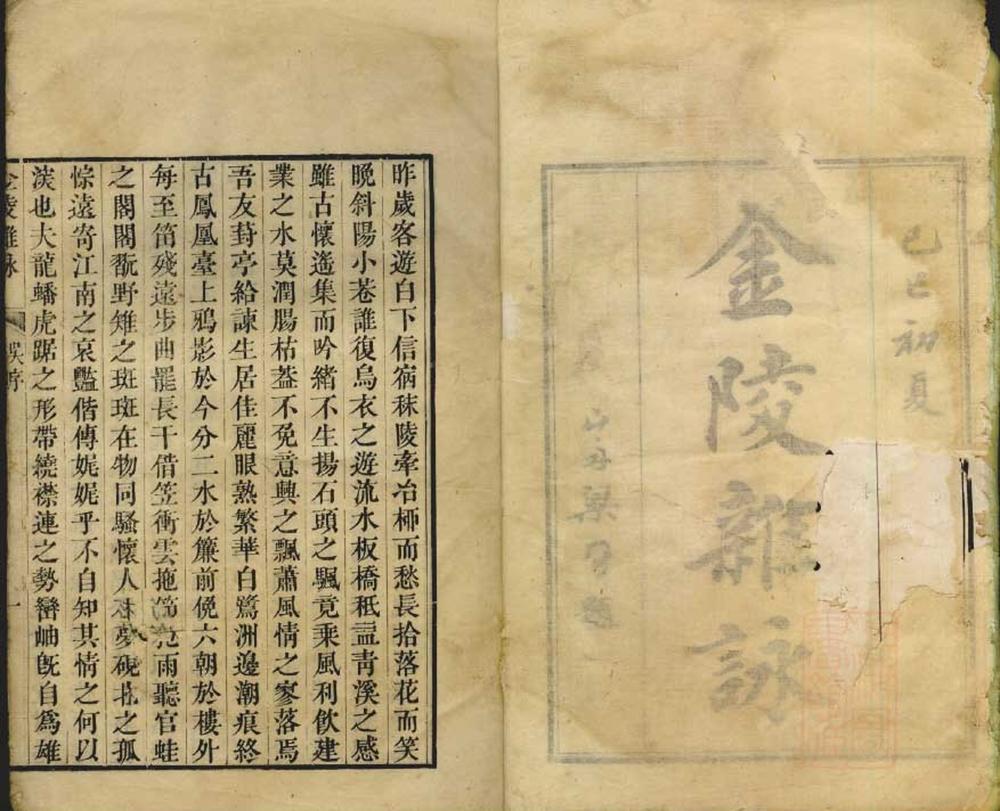 己巳初夏
金陵雜詠
昨歲客遊白下信宿秣陵牽冶柳而愁長拾落花而笑
晚斜陽小巷誰復烏衣之遊流水板橋秖證青溪之感
雖古懷遙集而吟緒不生揚石頭之颿竟乘風利飲建
業之水莫潤腸枯葢不免意興之飄蕭風情之寥落焉
吾友葑亭給諫生居佳麗眼熟繁華白鷺洲邊潮痕終
古鳳凰臺上鴉影於今分二水於簾前俛六朝於樓外
每至笛殘遠步曲罷長干借笠衝雲拖笻雨聽官蛙
之閣閣翫野雉之斑斑在物同騷懷人夢硯北之孤
悰遠寄江南之哀豔偕傳妮妮乎不自知其情之何以
淡也夫龍蟠虎踞之形帶繞襟連之勢巒岫旣自為雄
金陵雜詠
序
一